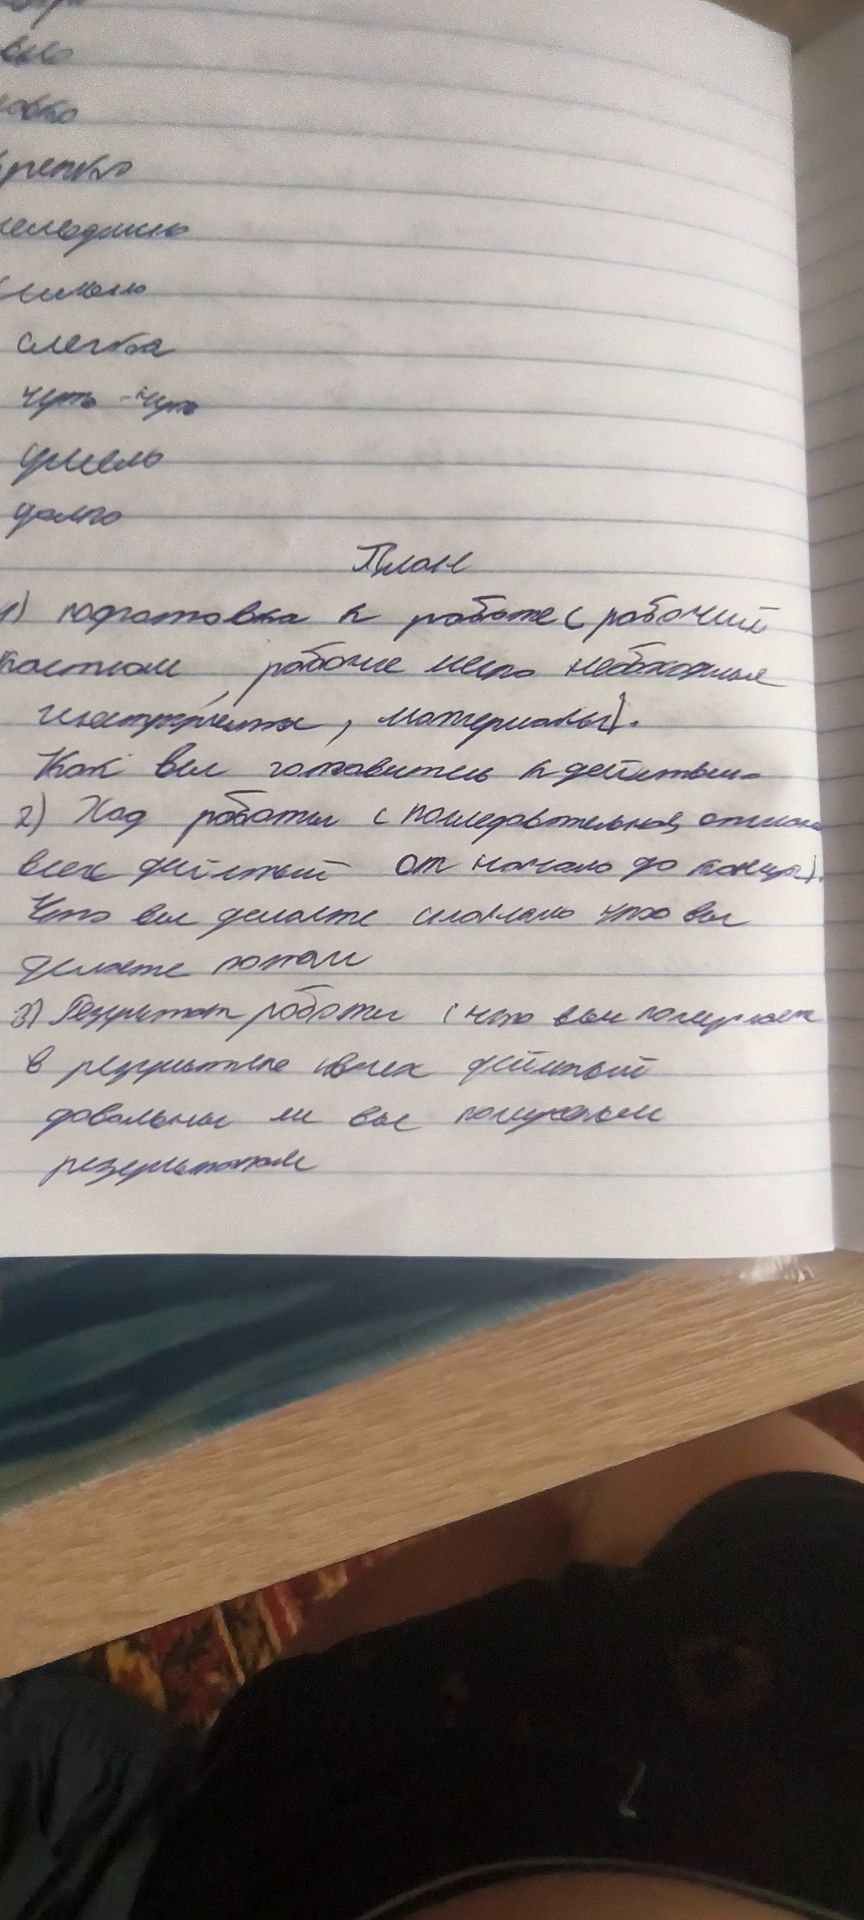 слегка
чуть-чуть
умело
долго
План
1) подготовка к работе (рабочий
костюм, рабочие место необходимые
инструменты, материалы).
Как вы готовитесь к действию
2) Ход работы (последовательное описание
всех действий от начало до конца).
Что вы делаете сначало что вы
делаете потом
3) Результат работы (что вы получаете
в результате своих действий
довольны ли вы полученым
результатом